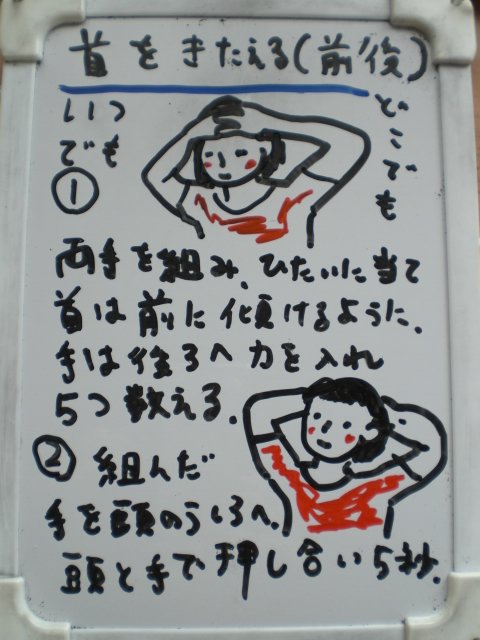 首をきたえる(前後)
いつでも
どこでも
①
両手を組み、ひたいに当て
首は前に傾けるように、
手は後ろへ力を入れ
5つ数える.
② 組んだ
手を頭のうしろへ.
頭と手で押し合い5秒.